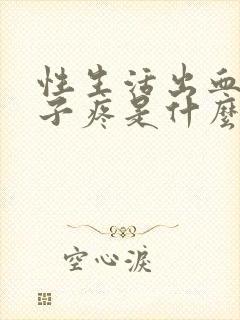 性生活出血
子疼是什麼
空心淚